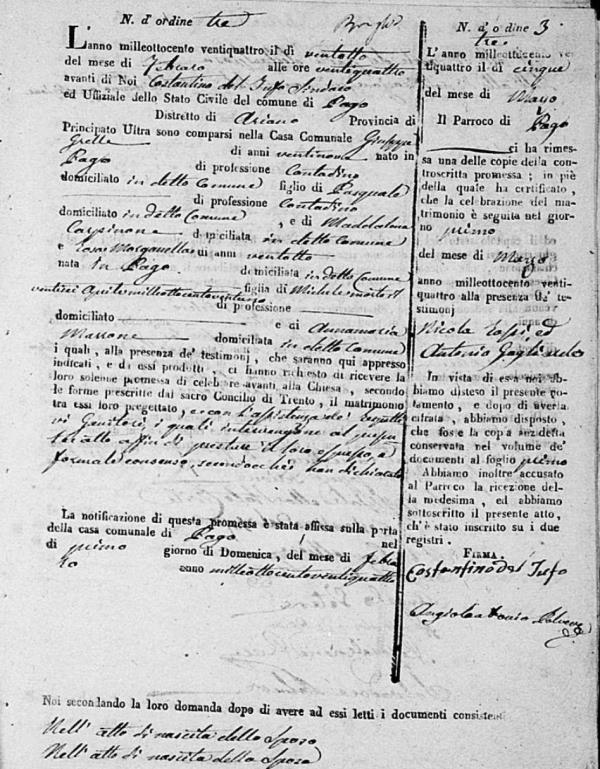 N. d'ordine tre
L'anno milleottocento ventiquattro il dì ventotto
del mese di Febraro alle ore ventiquattro
avanti di Noi Costantino del Tufo Sindaco
ed Uffiziale dello Stato Civile del comune di Pago
Distretto di Ariano Provincia di
Principato Ultra sono comparsi nella Casa Comunale Giuseppe
Grella di anni ventinove nato in
Pago di professione Contadino
domiciliato in detto Comune figlio di Pasquale
di professione Contadino
domiciliato in detto Comune, e di Maddalena
Carpinone domiciliata in detto Comune
e Rosa di anni ventotto
nata in Pago domiciliata in detto Comune
figlia di Michele morto
milleottocentoventuno di professione
domiciliato e di Annamaria
Massone domiciliata in detto Comune
i quali, alla presenza de' testimonj, che saranno qui appresso
indicati, e da essi prodotti, ci hanno richiesto di ricevere la
loro solenne promessa di celebrare avanti alla Chiesa, secondo
le forme prescritte dal sacro Concilio di Trento, il matrimonio
tra essi loro progettato, e con l'assistenza de'
Genitori, i quali intervengono al
affin di prestare il loro espresso, e
formale consenso, secondocchè han dichiarato
La notificazione di questa promessa è stata affissa sulla porta
della casa comunale di Pago nel
dì primo giorno di Domenica, del mese di Febra
ro anno milleottocentoventiquattro
Noi secondando la loro domanda dopo di avere ad essi letti i documenti consistenti
Nell' atto di nascita dello Sposo
Nell' atto di nascita della Sposa
N. d'ordine 3
tre
L'anno milleottocento ve-
tiquattro il dì cinque
del mese di Marzo
Il Parroco di Pago
ci ha rimes-
sa una delle copie della con-
troscritta promessa; in piè
della quale ha certificato,
che la celebrazione del ma-
trimonio è seguita nel gior-
no primo
del mese di Marzo
anno milleottocento venti-
quattro alla presenza de' te-
stimonj
Nicola Rossi ed
Antonio
In vista di essa noi ab-
biamo disteso il presente no-
tamento, e dopo di averla
cifrata, abbiamo disposto,
che fosse la copia anzidetta
conservata nel volume de'
documenti al foglio primo
Abbiamo inoltre accusato
al Parroco la ricezione del-
la medesima, ed abbiamo
sottoscritto il presente atto,
ch'è stato inscritto su i due
registri.
FIRMA
Costantino del Tufo
Angiolantonio